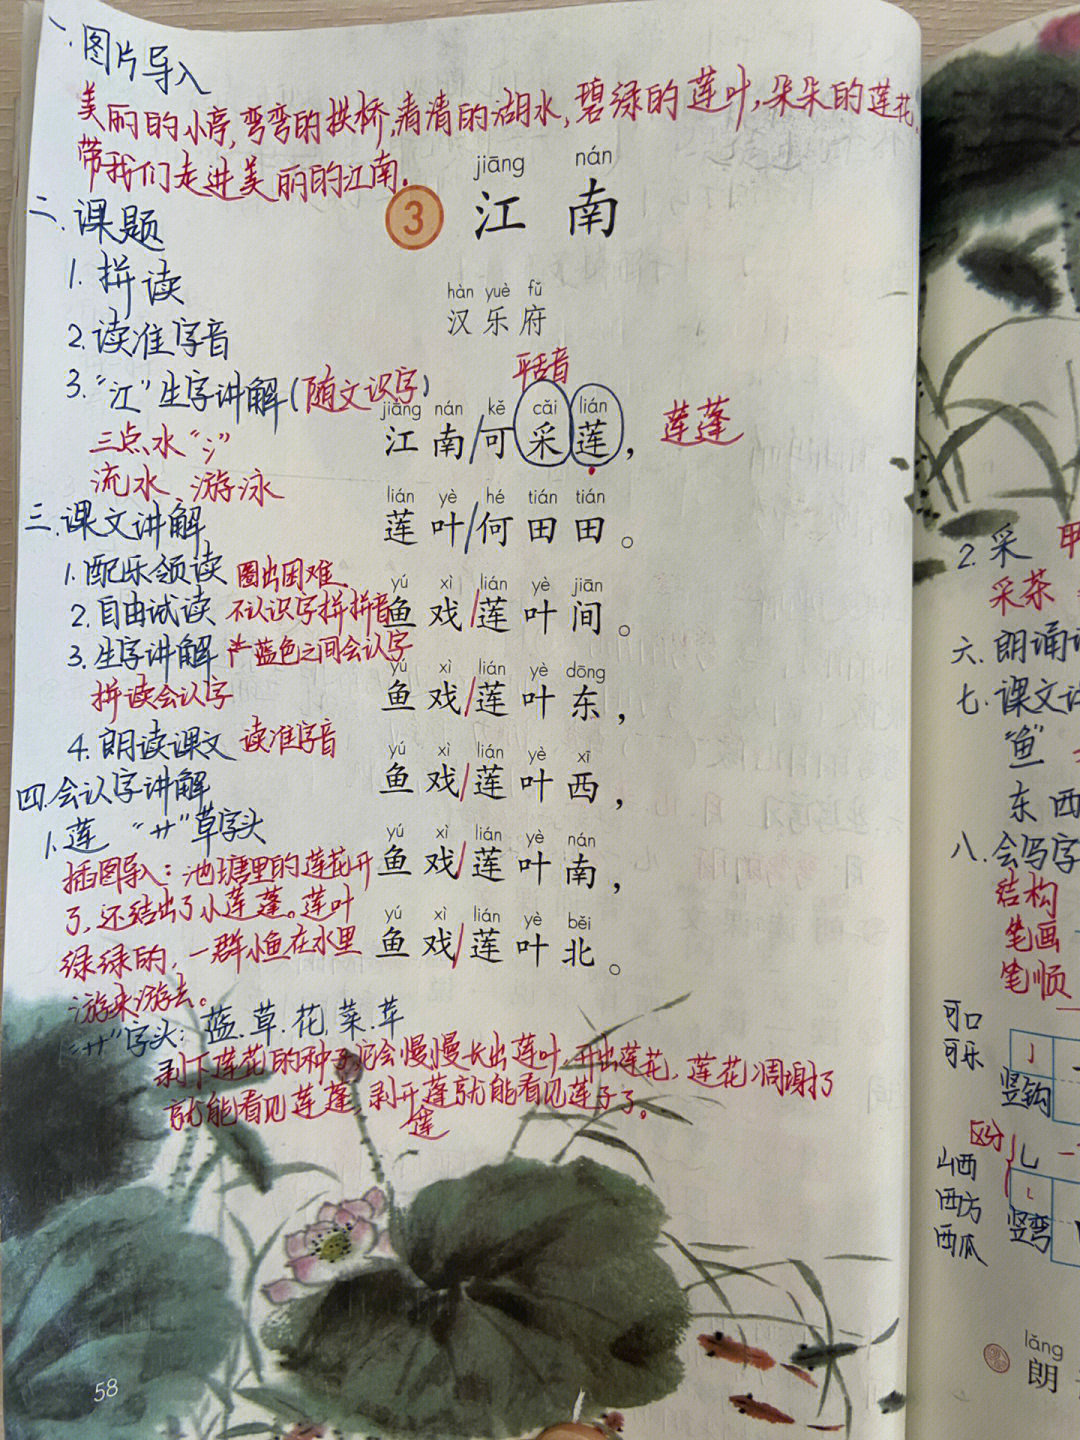 一.图片导入
美丽的小亭,弯弯的拱桥,清清的湖水,碧绿的莲叶,朵朵的莲花,
带我们走进美丽的江南.
jiāng nán
3 江南
二.课题
1.拼读
hàn yuè fǔ
汉乐府
2.读准字音
平舌音
3."江"生字讲解(随文识字)
jiāng nán kě cǎi lián
江南/可采莲, 莲蓬
三点水"氵"
流水、游泳
lián yè hé tián tián
莲叶/何田田。
三.课文讲解
1.配乐领读 圈出困难.
yú xì lián yè jiān
鱼戏/莲叶间。
2.自由试读 不认识字拼拼音
3.生字讲解 蓝色之间会认字
拼读会认字
yú xì lián yè dōng
鱼戏/莲叶东,
4.朗读课文 读准字音
yú xì lián yè xī
鱼戏/莲叶西,
四.会认字讲解
1.莲 "艹"草字头
yú xì lián yè nán
鱼戏/莲叶南,
插图导入:池塘里的莲花开
了,还结出了小莲蓬。莲叶
绿绿的,一群小鱼在水里
游来游去。
yú xì lián yè běi
鱼戏/莲叶北。
"艹"字头:蓝.草.花.菜.苹
剥下莲花的种子,它会慢慢长出莲叶,开出莲花,莲花凋谢了
就能看见莲蓬,剥开莲蓬就能看见莲子了。
58
2.采
采茶
六.朗诵
七.课文
"鱼"
东西
八.会写字
结构
笔画
笔顺
可口
可乐
竖钩
区分
山西
西方
西瓜
竖弯
lǎng
朗